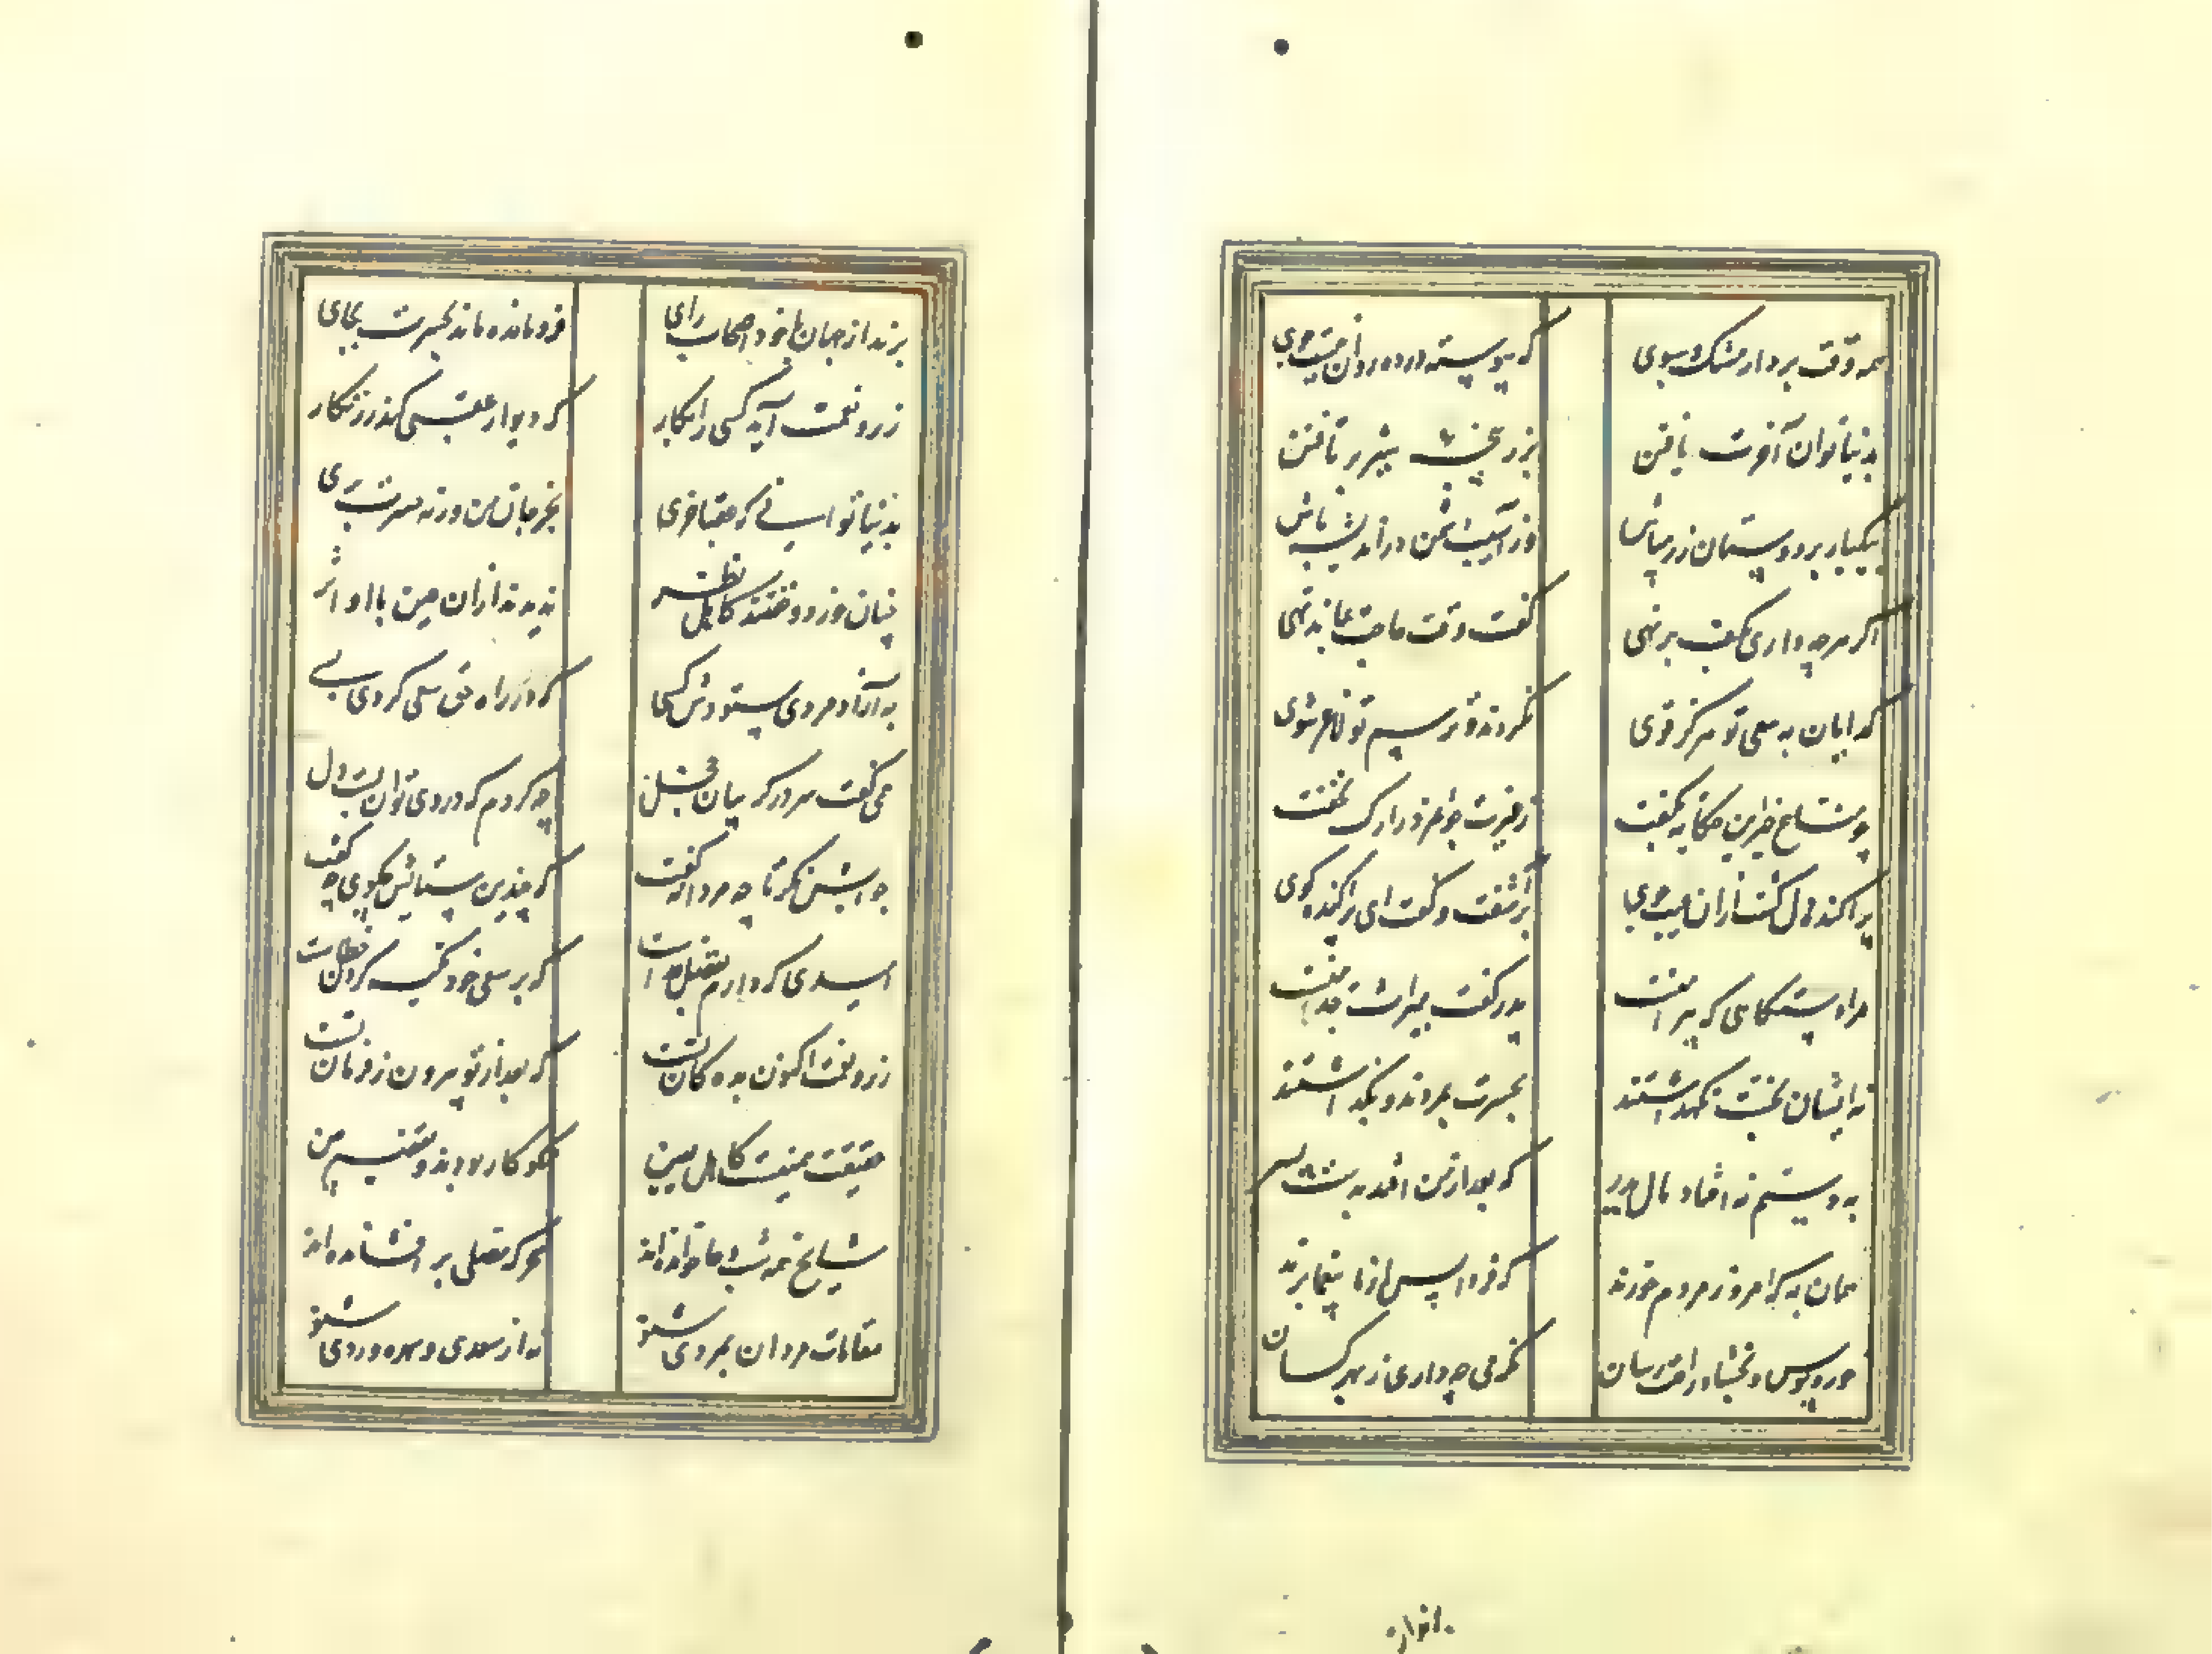 همه وقت بردار مشک و سبوی
که پیوسته در ده روان نیست جوی
بدنیا توان آخرت یافتن
بزر پنجه شیر بر تافتن
بیکبار بر دوستان زر مپاش
وز آسیب دشمن در اندیشه باش
اگر هر چه داری بکف بر نهی
کفت وقت حاجت بماند تهی
گدایان به سعی تو هرگز قوی
نگردند و ترسم تو لاغر شوی
چو مناع خیر این حکایه بگفت
ز غیرت جوانمرد را رگ نخفت
پراکنده دل گشت ازان عیب جوی
بر آشفت و گفت ای پراکنده گوی
مرا دستگاهی که پیرامنست
پدر گفت میراث جد منست
نه ایشان بخست نگهداشتند
بحسرت بمردند و بگذاشتند
به دستم نه افتاد مال پدر
که بعد از من افتد به دست پسر
همان به که امروز مردم خورند
که فردا پس از ما یغما برند
خور و پوش و بخشا و راحت رسان
نگه می چه داری ز بهر کسان
انزار
برند از جهان با خود اصحاب رای
فرومانده ماند بحسرت بجای
زر و نعمت آید کسی را بکار
که دیوار عقبی کند زرنگار
بدنیا توانی که عقبا خری
بخر جان من ورنه حسرت بری
چنان خورد و بخشید کاهل نظر
ندیدند ازان عین با او اثر
به آزاد مردی ستودش کسی
که در راه حق سعی کردی بسی
همی گفت سر در گریبان خجل
چه کردم که در وی توان بست دل
جوابش نگر تا چه مردانه گفت
که چندین ستایش چگویی چه گفت
امیدی که دارم بفضل خداست
که بر سعی خود تکیه کردن خطاست
زر و نعمت اکنون بده کان تست
که بعد از تو بیرون ز فرمان تست
حقیقت همینست کاهل یقین
نکو کار بودند و تقصیر بین
مشایخ همه شب دعا خوانده اند
سحر که مصلی بر افشانده اند
مقامات مردان بمردی شنو
نه از سعدی و سهروردی شنو